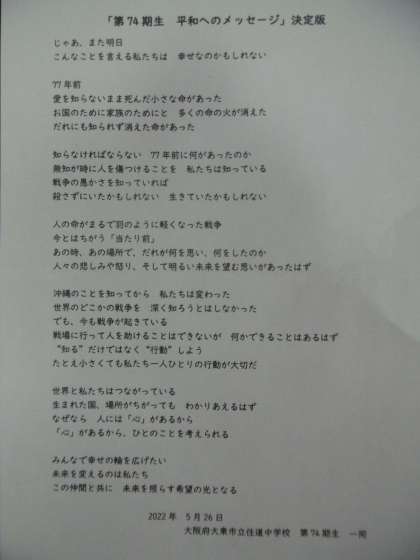 「第74期生　平和へのメッセージ」決定版
じゃあ、また明日
こんなことを言える私たちは　幸せなのかもしれない
77年前
愛を知らないまま死んだ小さな命があった
お国のために家族のためにと　多くの命の火が消えた
だれにも知られず消えた命があった
知らなければならない　77年前に何があったのか
無知が時に人を傷つけることを　私たちは知っている
戦争の愚かさを知っていれば
殺さずにいたかもしれない　生きていたかもしれない
人の命がまるで羽のように軽くなった戦争
今とはちがう「当たり前」
あの時、あの場所で、だれが何を思い、何をしたのか
人々の悲しみや怒り、そして明るい未来を望む思いがあったはず
沖縄のことを知ってから　私たちは変わった
世界のどこかの戦争を　深く知ろうとはしなかった
でも、今も戦争が起きている
戦場に行って人を助けることはできないが　何かできることはあるはず
“知る”だけではなく“行動”しよう
たとえ小さくても私たち一人ひとりの行動が大切だ
世界と私たちはつながっている
生まれた国、場所がちがっても　わかりあえるはず
なぜなら　人には「心」があるから
「心」があるから、ひとのことを考えられる
みんなで幸せの輪を広げたい
未来を変えるのは私たち
この仲間と共に　未来を照らす希望の光となる
2022年　5月26日
大阪府大東市立住道中学校　第74期生　一同